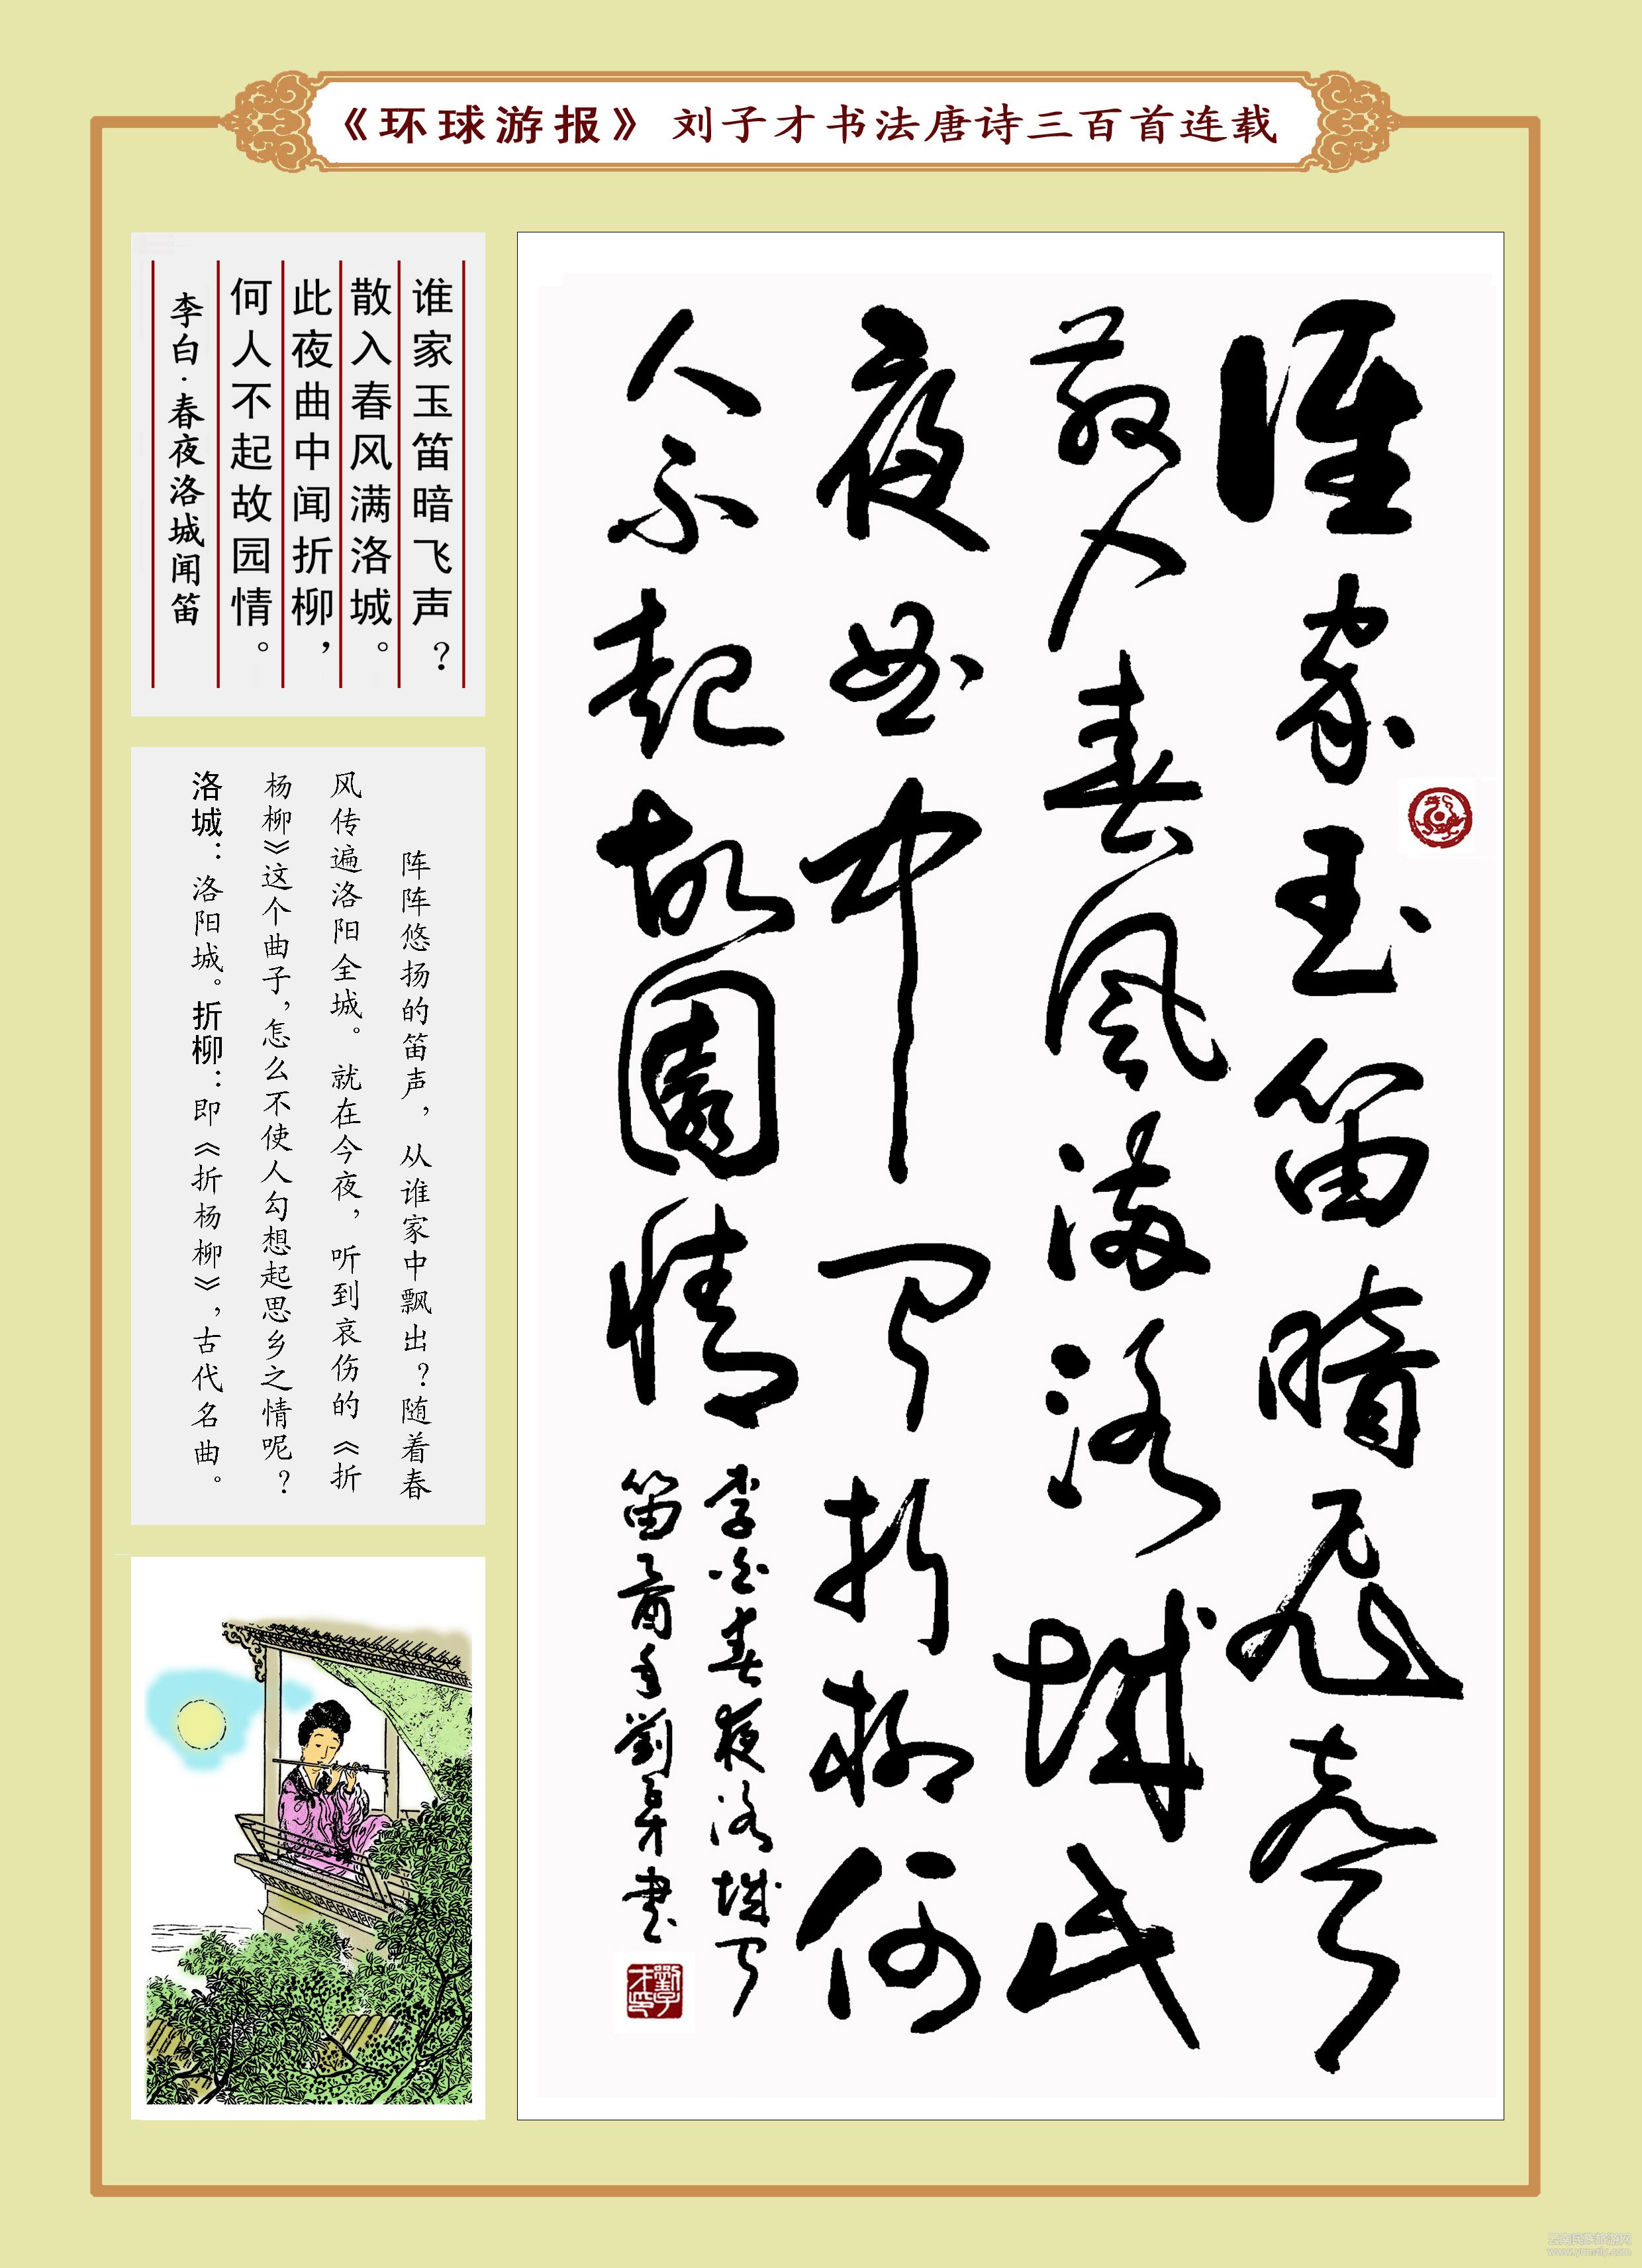 《环球游报》刘子才书法唐诗三百首连载
誰家玉笛暗飛聲
散入春風滿洛城此
夜曲中聞折柳何
人不起故園情
李白春夜洛城聞
笛
劉子才書
谁家玉笛暗飞声？
散入春风满洛城。
此夜曲中闻折柳，
何人不起故园情。
李白·春夜洛城闻笛
阵阵悠扬的笛声，从谁家中飘出？随着春
风传遍洛阳全城。就在今夜，听到哀伤的《折
杨柳》这个曲子，怎么不使人勾想起思乡之情呢？
洛城：洛阳城。折柳：即《折杨柳》，古代名曲。